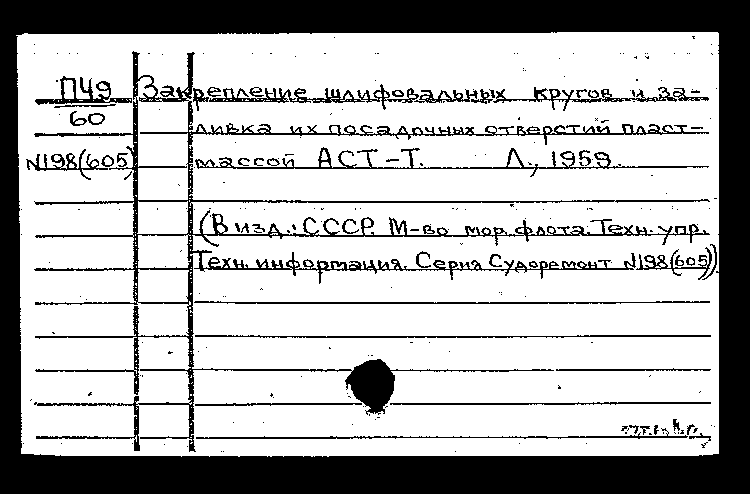 П49 Закрепление шлифовальных кругов и за-
60 ливка их посадочных отверстий пласт-
N198(605) массой АСТ-Т. Л., 1959.
(В изд.: СССР. М-во мор. флота. Техн. упр.
Техн. информация. Серия Судоремонт N198(605))